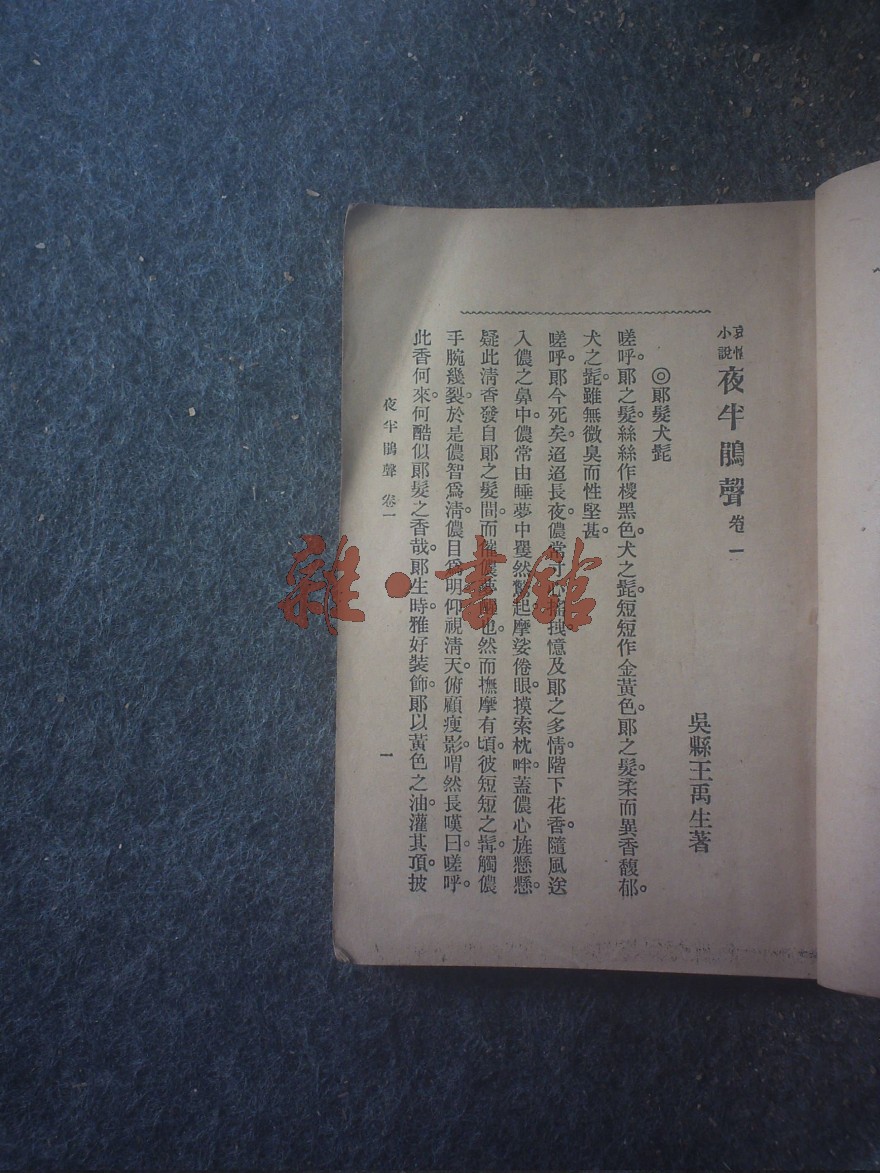 哀情小說 夜半鵑聲 卷一
吳縣王禹生著
◎郞髮犬髭
嗟呼。郞之髮絲絲作椶黑色。犬之髭。短短作金黃色。郞之髮柔而異香馥郁。
犬之髭。雖無微臭而性堅甚。
嗟呼。郞今死矣。迢迢長夜。儂常寸心搖拽。憶及郞之多情。階下花香。隨風送
入儂之鼻中。儂常由睡夢中矍然驚起。摩娑倦眼。摸索枕畔。蓋儂心旌懸懸。
疑此清香發自郞之髮間。而催儂夢醒也。然而撫摩有頃。彼短短之髯。觸儂
手腕幾裂。於是儂智爲清。儂目爲明。仰視淸天。俯顧瘦影。喟然長嘆曰。嗟呼。
此香何來。何酷似郞髮之香哉。郞生時雅好裝飾。郞以黃色之油。灌其頂。披
夜半鵑聲 卷一
一
雜·書館